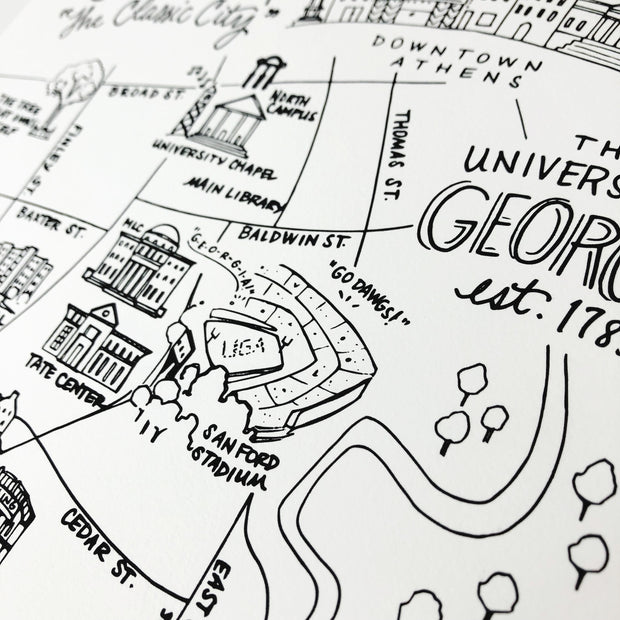 "The Classic City"
DOWNTOWN
ATHENS
BROAD ST.
NORTH
CAMPUS
THE TREE
FINLEY ST.
UNIVERSITY CHAPEL
MAIN LIBRARY
THOMAS ST.
BAXTER ST.
MLC
"G-E-O-R-G-I-A!"
BALDWIN ST.
"GO DAWGS!"
UGA
TATE CENTER
SANFORD
STADIUM
CEDAR ST.
EAST
TH
UNIVERS
GEOR
est. 178